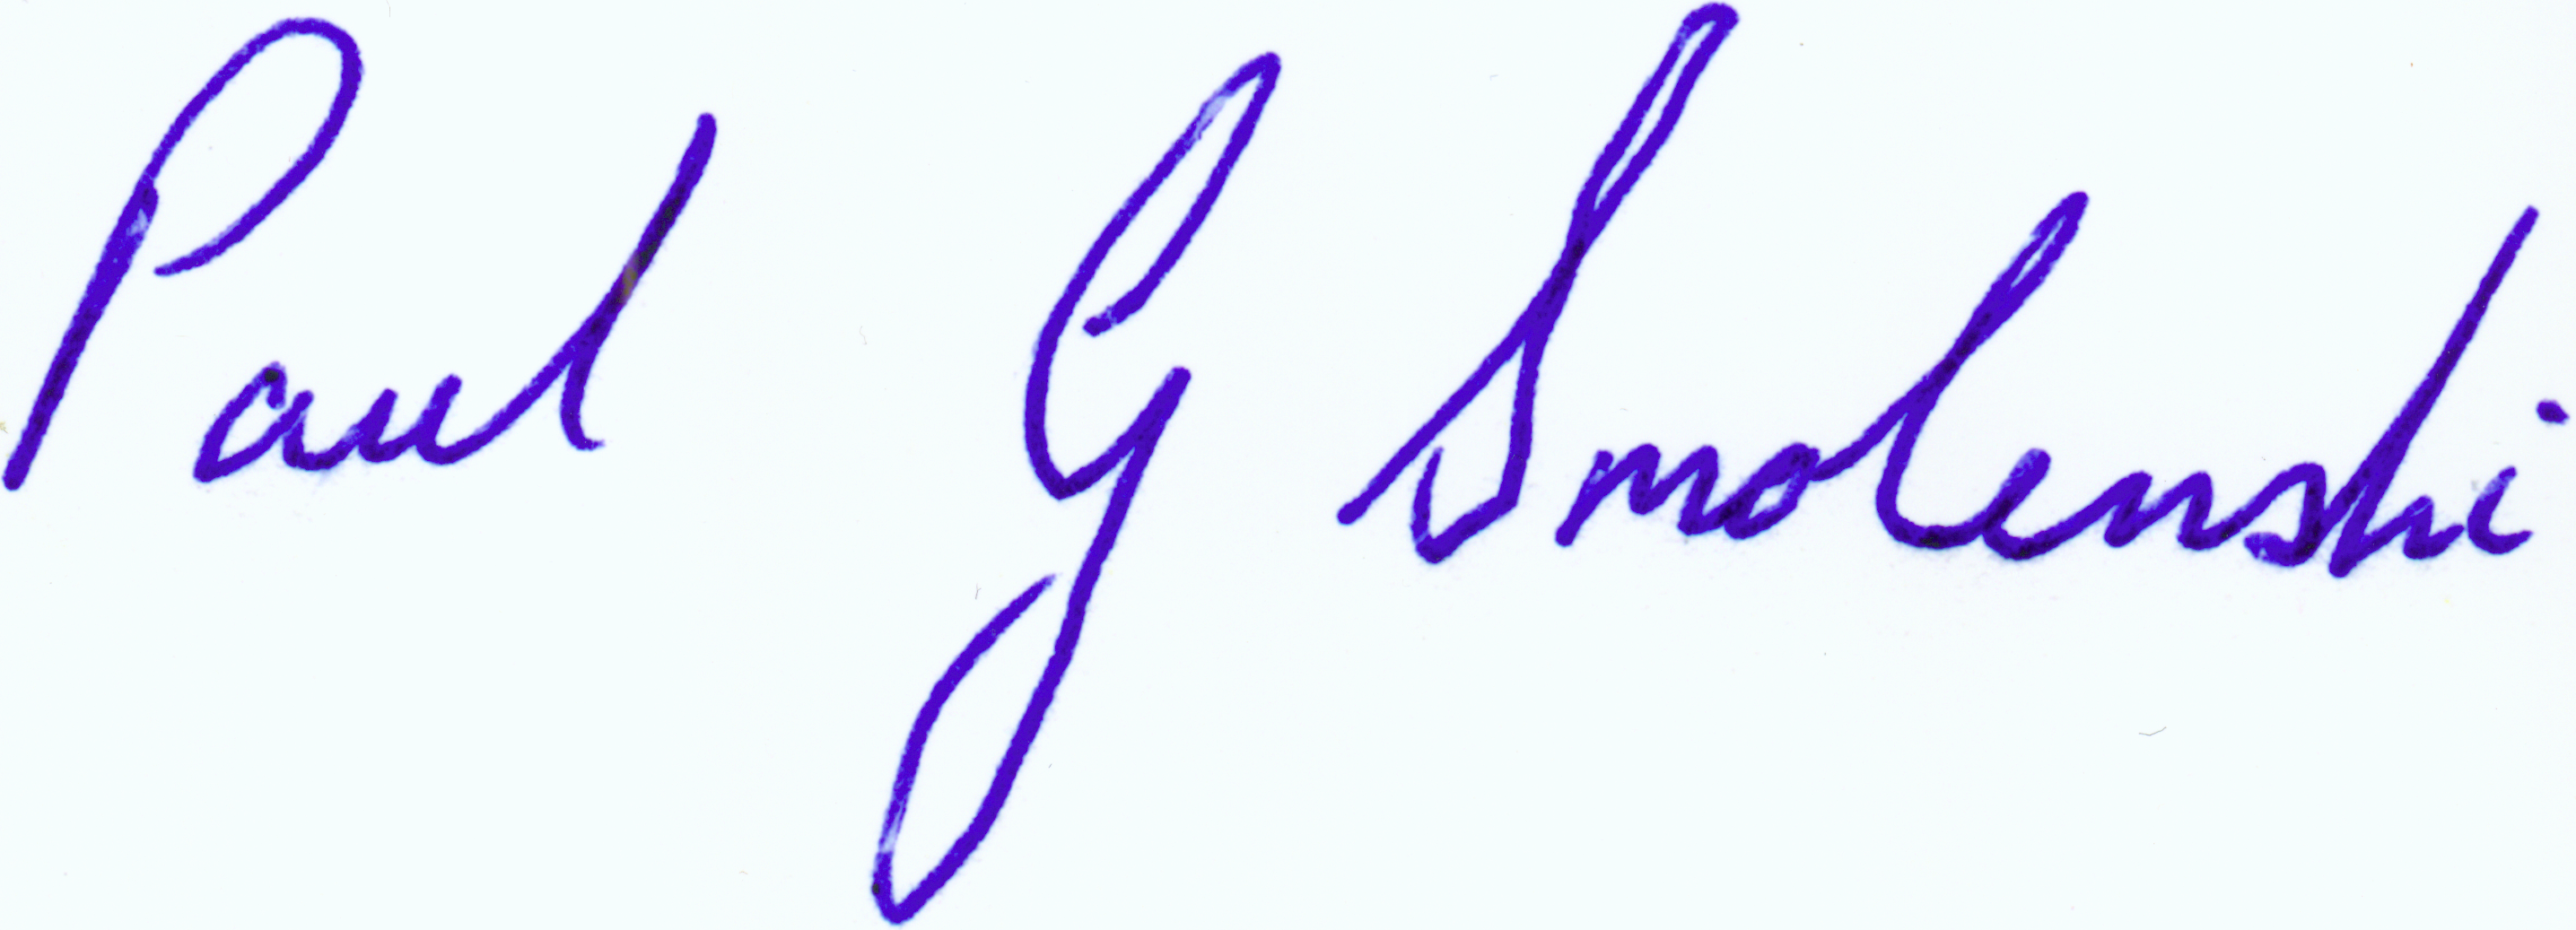 Paul G Smolenski